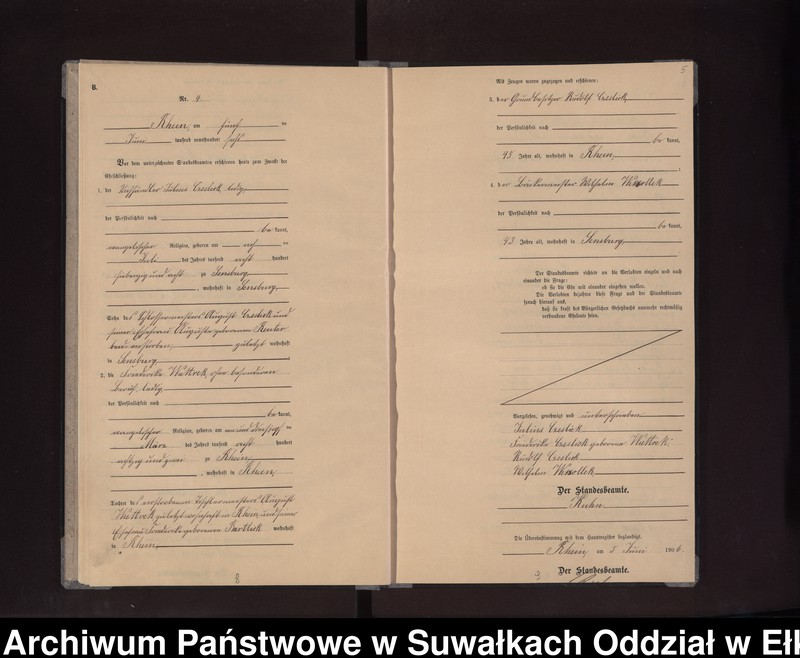 B.
Nr. 9
Rhein, am fünf ten
Juni tausend neunhundert sechs
Vor dem unterzeichneten Standesbeamten erschienen heute zum Zwecke der
Eheschließung:
1. der Julius ledig,
der Persönlichkeit nach
be kannt,
evangelischer Religion, geboren am ten
Juli des Jahres tausend acht hundert
siebenzig und acht zu Sensburg,
, wohnhaft in Sensburg,
Sohn des August und
seiner Ehefrau Auguste geborenen
verstorben, zuletzt wohnhaft
in Sensburg
2. die Friederike ohne besonderen
Beruf, ledig,
der Persönlichkeit nach
be kannt,
evangelischer Religion, geboren am
März des Jahres tausend acht hundert
achtzig und zwei zu Rhein,
, wohnhaft in Rhein,
Tochter des verstorbenen Tischlermeisters August
zuletzt wohnhaft in Rhein, und seiner
Ehefrau Friederike geborenen wohnhaft
in Rhein,
8
5
Als Zeugen waren zugezogen und erschienen:
3. der Grundbesitzer Rudolf
der Persönlichkeit nach
be kannt,
45 Jahre alt, wohnhaft in Rhein,
4. der Bäckermeister Wilhelm
der Persönlichkeit nach
be kannt,
43 Jahre alt, wohnhaft in Sensburg
Der Standesbeamte richtete an die Verlobten einzeln und nach
einander die Frage:
ob sie die Ehe mit einander eingehen wollen.
Die Verlobten bejahten diese Frage und der Standesbeamte
sprach hierauf aus,
daß sie kraft des Bürgerlichen Gesetzbuchs nunmehr rechtmäßig
verbundene Eheleute seien.
Vorgelesen, genehmigt und unterschrieben
Julius
Friederike geborene
Rudolf
Wilhelm
Der Standesbeamte.
Kuhn
Die Übereinstimmung mit dem Hauptregister beglaubigt.
Rhein, am 5. Juni 1906.
Der Standesbeamte.
Archiwum Państwowe w Suwałkach Oddział w Ełk